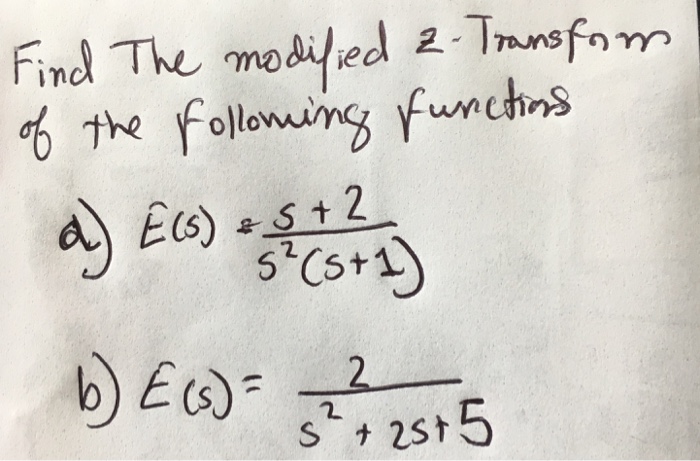 Find The modified z-Transform
of the following functions
a) E(s) = s + 2 / s²(s+1)
b) E(s) = 2 / s² + 2s + 5